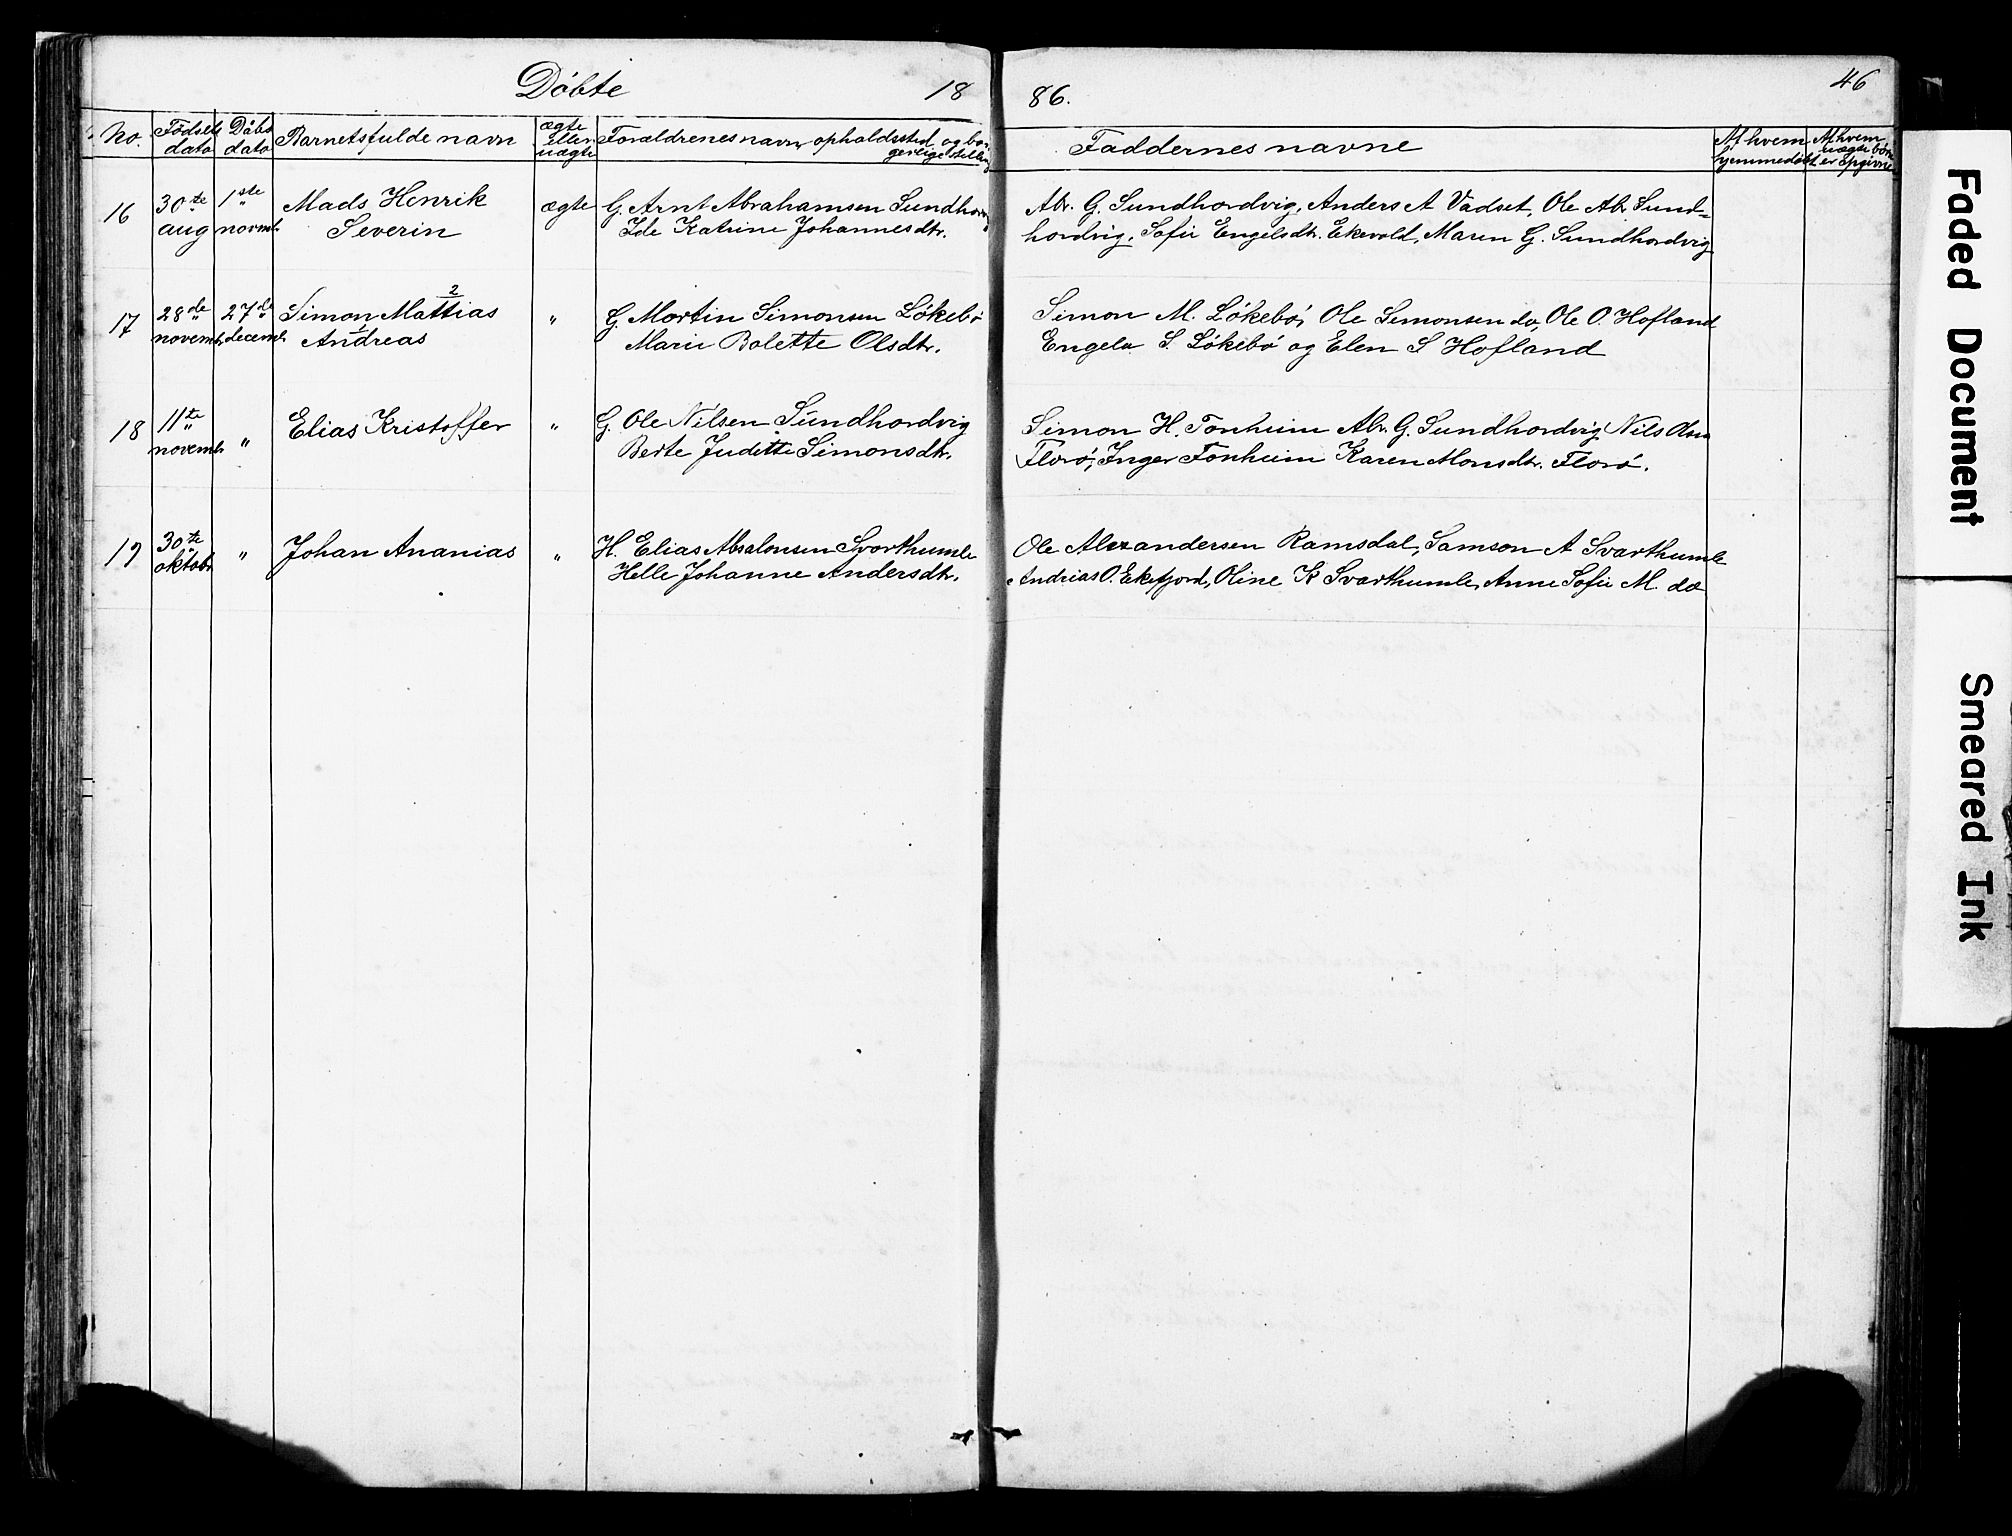 Döbte 1886. 46
No. Födsels dato Döbs dato Barnets fulde navn ægte eller uægte Forældrenes navn, opholdssted og borgerlige stilling Faddernes navne Af hvem hjemmedöbt Af hvem uægte börn er opgivne
16 30te 1ste Mads Henrik ægte G. Arnt Abrahamsen Sundhordvig Abr. G. Sundhordvig, Anders A Vadset, Ole Abr. Sund-
aug novmb. Severin Ide Katrine Johannesdtr. hordvig, Sofie Engelsdtr. Ekevold, Maren G. Sundhordvig
17 28de 27de Simon Mattias 2 " G. Martin Simonsen Lökebö Simon M. Lökebö, Ole Simonsen do, Ole O. Hofland
novemb. decemb. Andreas 1 Marie Bolette Olsdtr. Engela S. Lökebö og Elen S Hofland
18 11te " Elias Kristoffer " G. Ole Nilsen Sundhordvig Simon H. Tonheim Abr. G. Sundhordvig Nils Olsen
novemb. Berte Juditte Simonsdtr. Florö, Inger Tonheim Karen Monsdtr. Florö.
19 30te " Johan Ananias " H. Elias Absalonsen Svarthumle Ole Alexandersen Ramsdal, Samson A Svarthumle
oktobr. Helle Johanne Andersdtr. Andrias O. Ekefjord, Oline K Svarthumle, Anne Sofie M. do
Faded Document
Smeared Ink